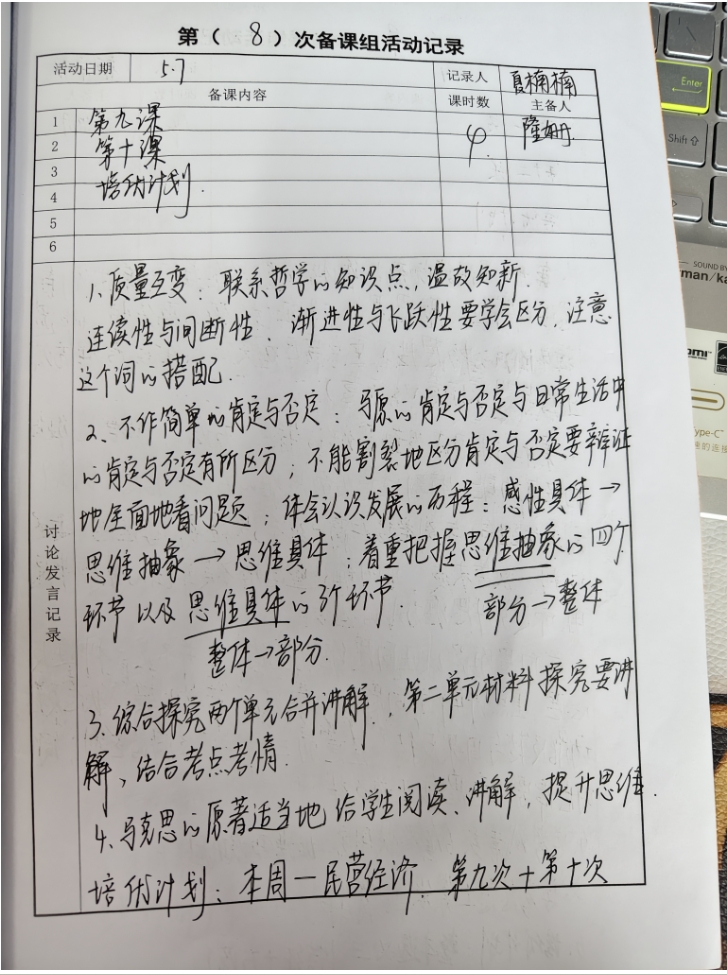 第（8）次备课组活动记录
活动日期 5.7 记录人 夏楠楠
备课内容 课时数 主备人
1 第九课 4 隆姗
2 第十课
3 培优计划
4
5
6
讨论发言记录
1、质量互变：联系哲学的知识点，温故知新.
连续性与间断性、渐进性与飞跃性要学会区分，注意
这个词的搭配.
2、不作简单的肯定与否定：马原的肯定与否定与日常生活中
的肯定与否定有所区分；不能割裂地区分肯定与否定要辩证
地全面地看问题；体会认识发展的历程：感性具体→
思维抽象→思维具体；着重把握思维抽象的四个
环节以及思维具体的3个环节. 部分→整体
整体→部分.
3、综合探究两个单元合并讲解、第二单元材料探究要讲
解、结合考点考情.
4、马克思的原著适当地给学生阅读、讲解，提升思维.
培优计划：本周一民营经济. 第九次+第十次
Enter
Shift
SOUND BY
rman/ka
ype-C